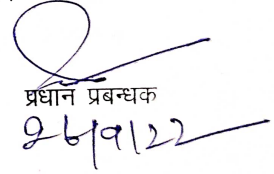 प्रधान प्रबन्धक
26/9/22